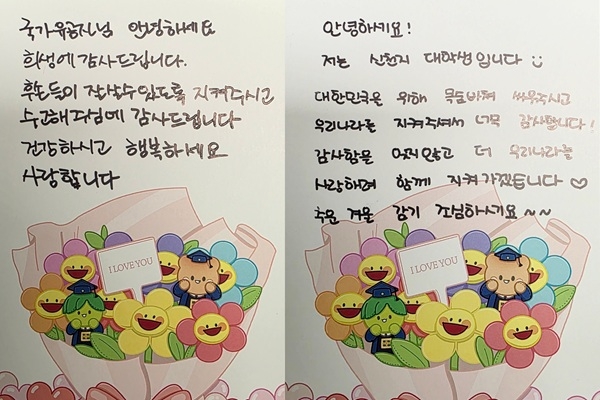 국가유공자님 안녕하세요
희생에 감사드립니다.
후손들이 잘살수있도록 지켜주시고
수고해주심에 감사드립니다
건강하시고 행복하세요
사랑합니다
I LOVE YOU
안녕하세요!
저는 신천지 대학생입니다
대한민국을 위해 목숨바쳐 싸워주시고
우리나라를 지켜주셔서 너무 감사합니다!
감사함을 잊지않고 더 우리나라를
사랑하며 함께 지켜가겠습니다 ♡
추운 겨울 감기 조심하세요~~
I LOVE YOU